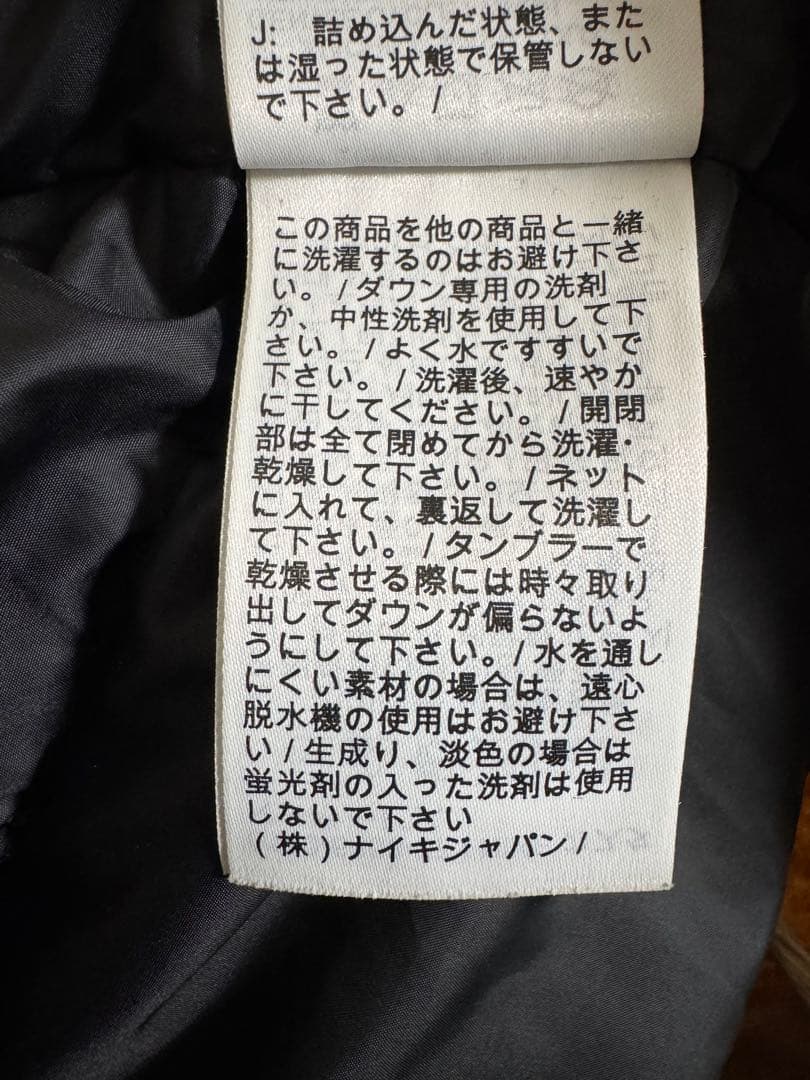 J: 詰め込んだ状態、また
は湿った状態で保管しない
で下さい。/
この商品を他の商品と一緒
に洗濯するのはお避け下さ
い。/ダウン専用の洗剤
か、中性洗剤を使用して下
さい。/よく水ですすいで
下さい。/洗濯後、速やか
に干してください。/開閉
部は全て閉めてから洗濯・
乾燥して下さい。/ネット
に入れて、裏返して洗濯し
て下さい。/タンブラーで
乾燥させる際には時々取り
出してダウンが偏らないよ
うにして下さい。/水を通し
にくい素材の場合は、遠心
脱水機の使用はお避け下さ
い/生成り、淡色の場合は
蛍光剤の入った洗剤は使用
しないで下さい
(株)ナイキジャパン/